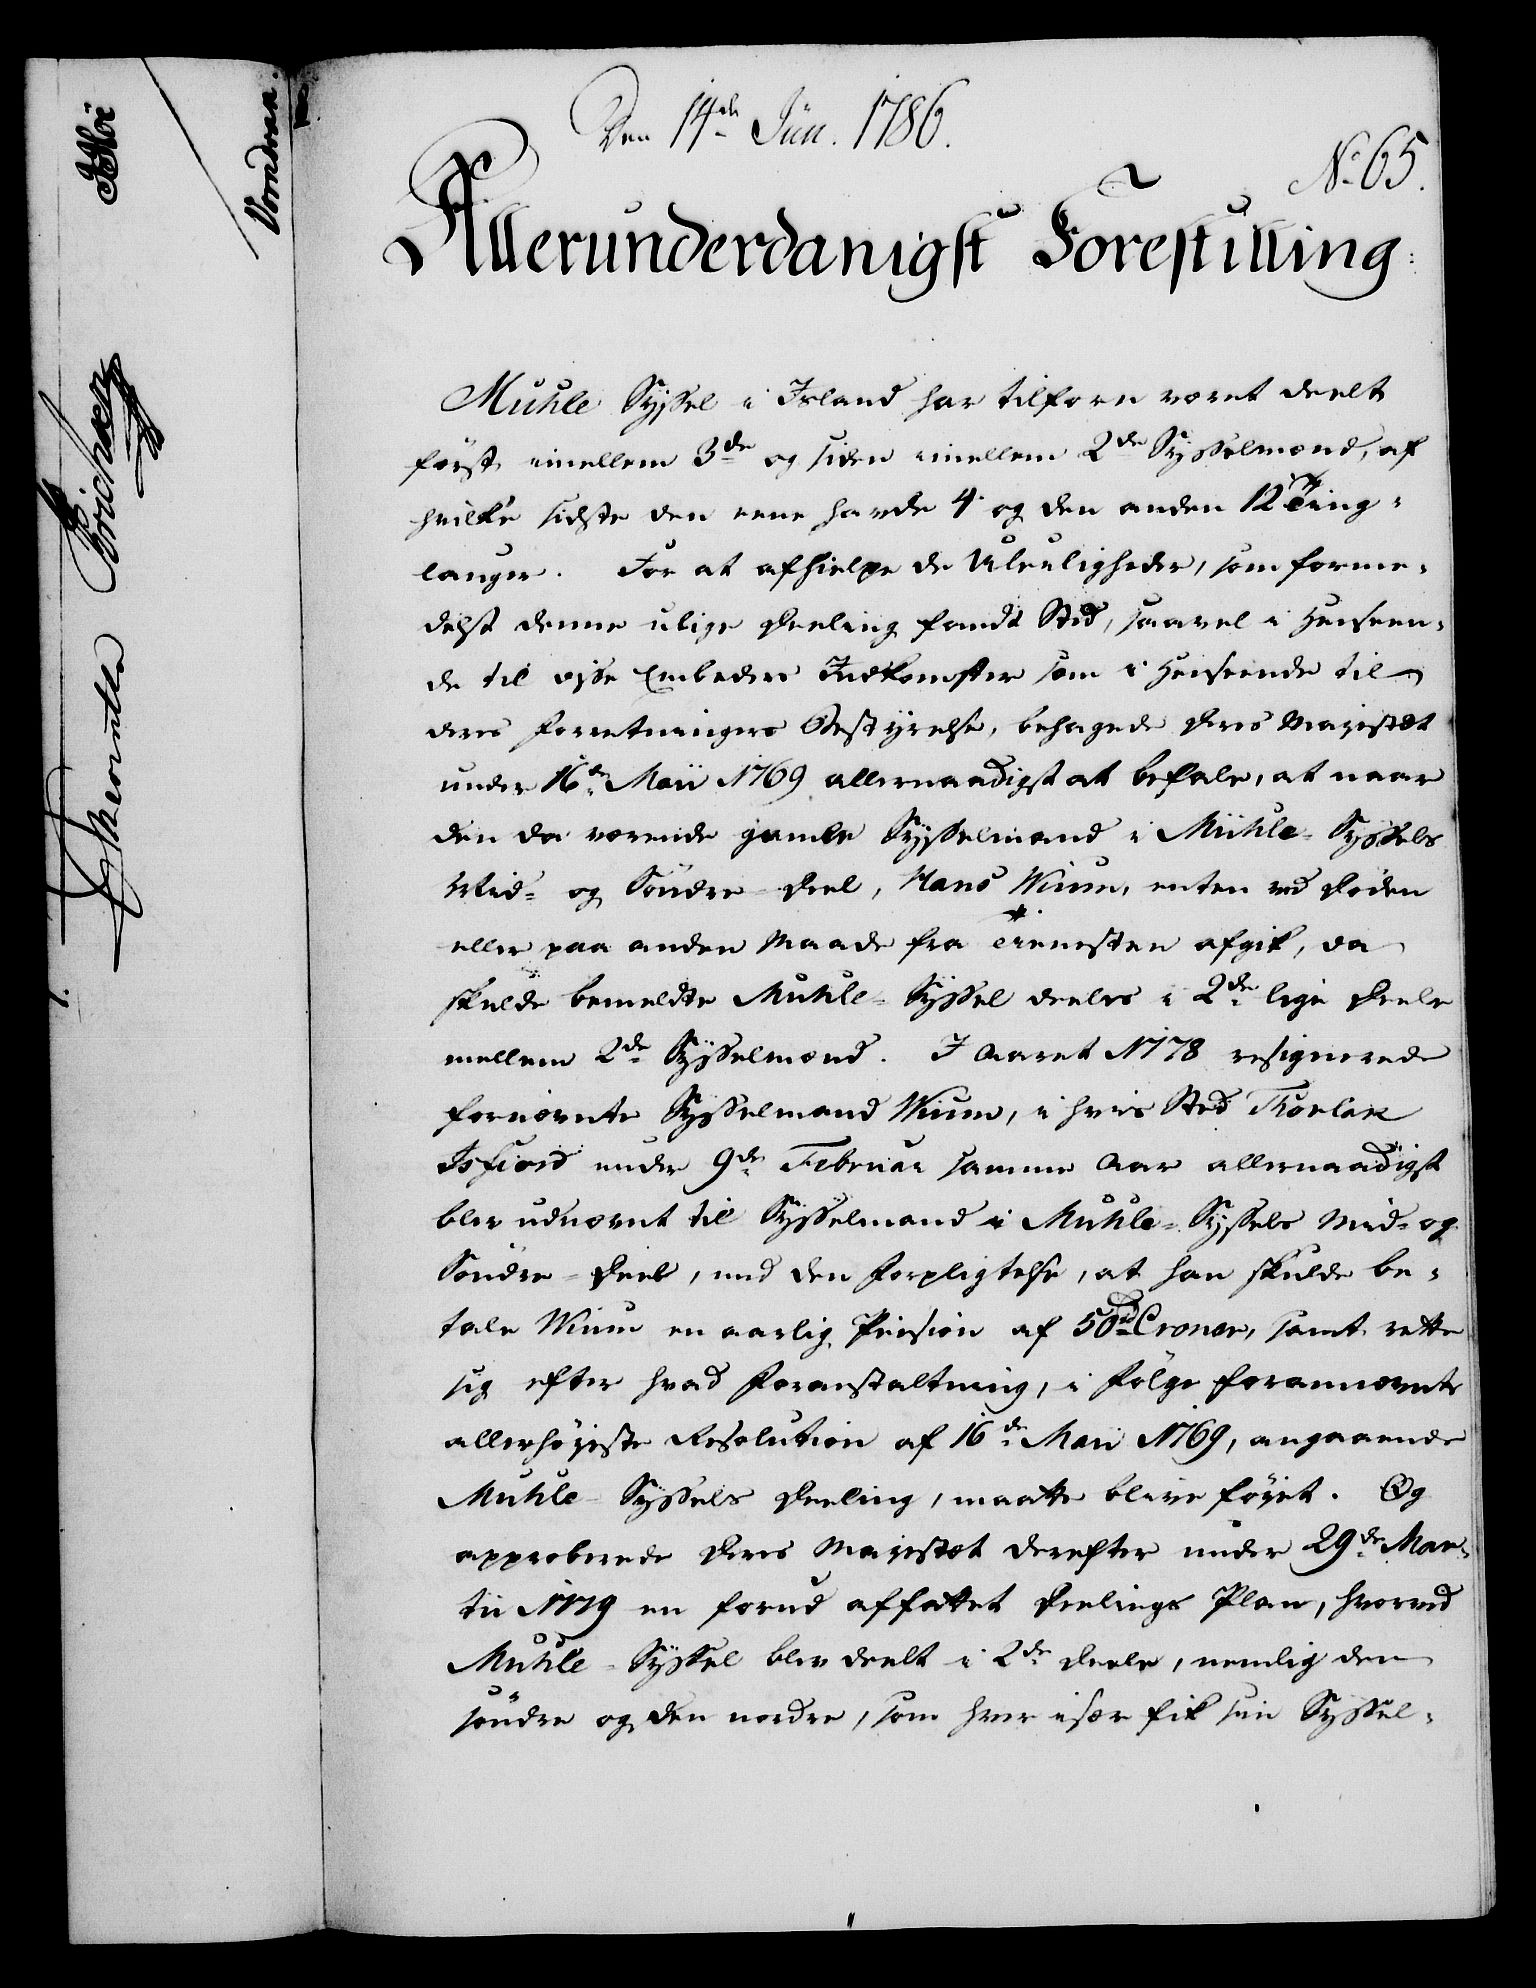 Den 14de Jun. 1786.
No 65.
Allerunderdanigst Forestilling:
Muhle Syssel i Island har tilforn været deelt
først imellem 3de og siden imellem 2de Sysselmænd, af
hvilke sidste den eene havde 4 og den anden 12 Ting-
lauger. For at afhielpe de Uleiligheder, som forme-
delst denne ulige Deeling fandt Sted, saavel i Henseen-
de til disse Embeders Indkomster som i Henseende til
deres Forretningers Bestyrelse, behagede Deres Majestæt
under 16de Maii 1769 allernaadigst at befale, at naar
den da værende gamle Sysselmand i Muhle-Syssels
Mid- og Søndre-Deel, Hans Wium, enten ved Døden
eller paa anden Maade fra Tienesten afgik, da
skulde bemeldte Muhle-Syssel deeles i 2de lige Deele
mellem 2de Sysselmænd. I Aaret 1778 resignerede
fornævnte Sysselmand Wium, i hvis Sted Thorlak
Isfiord under 9de Februar samme Aar allernaadigst
blev udnævnt til Sysselmand i Muhle-Syssels Mid- og
Søndre-Deel, med den Forpligtelse, at han skulde be-
tale Wium en aarlig Pension af 50 rd Croner, samt rette
sig efter hvad Foranstaltning, i Følge forannævnte
allerhøjeste Resolution af 16de Maii 1769, angaaende
Muhle-Syssels Deeling, maatte blive føjet. Og
approberede Deres Majestæt derefter under 29de Mar-
tii 1779 en forud affattet Deelings Plan, hvorved
Muhle-Syssel blev deelt i 2de Deele, nemlig den
søndre og den nordre, som hver især fik sin Syssel-